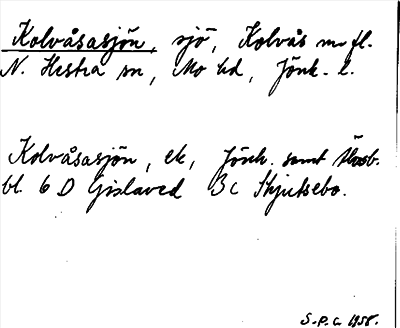 Kolvåsasjön, sjö, Kolvås m fl.
N. Hestra sn, Mo hd, Jönk. l.
Kolvåsasjön, ek, Jönk. samt Älvsb.
bl. 6 D Gislaved 3c Skjutsebo.
S.P.G. 1958.